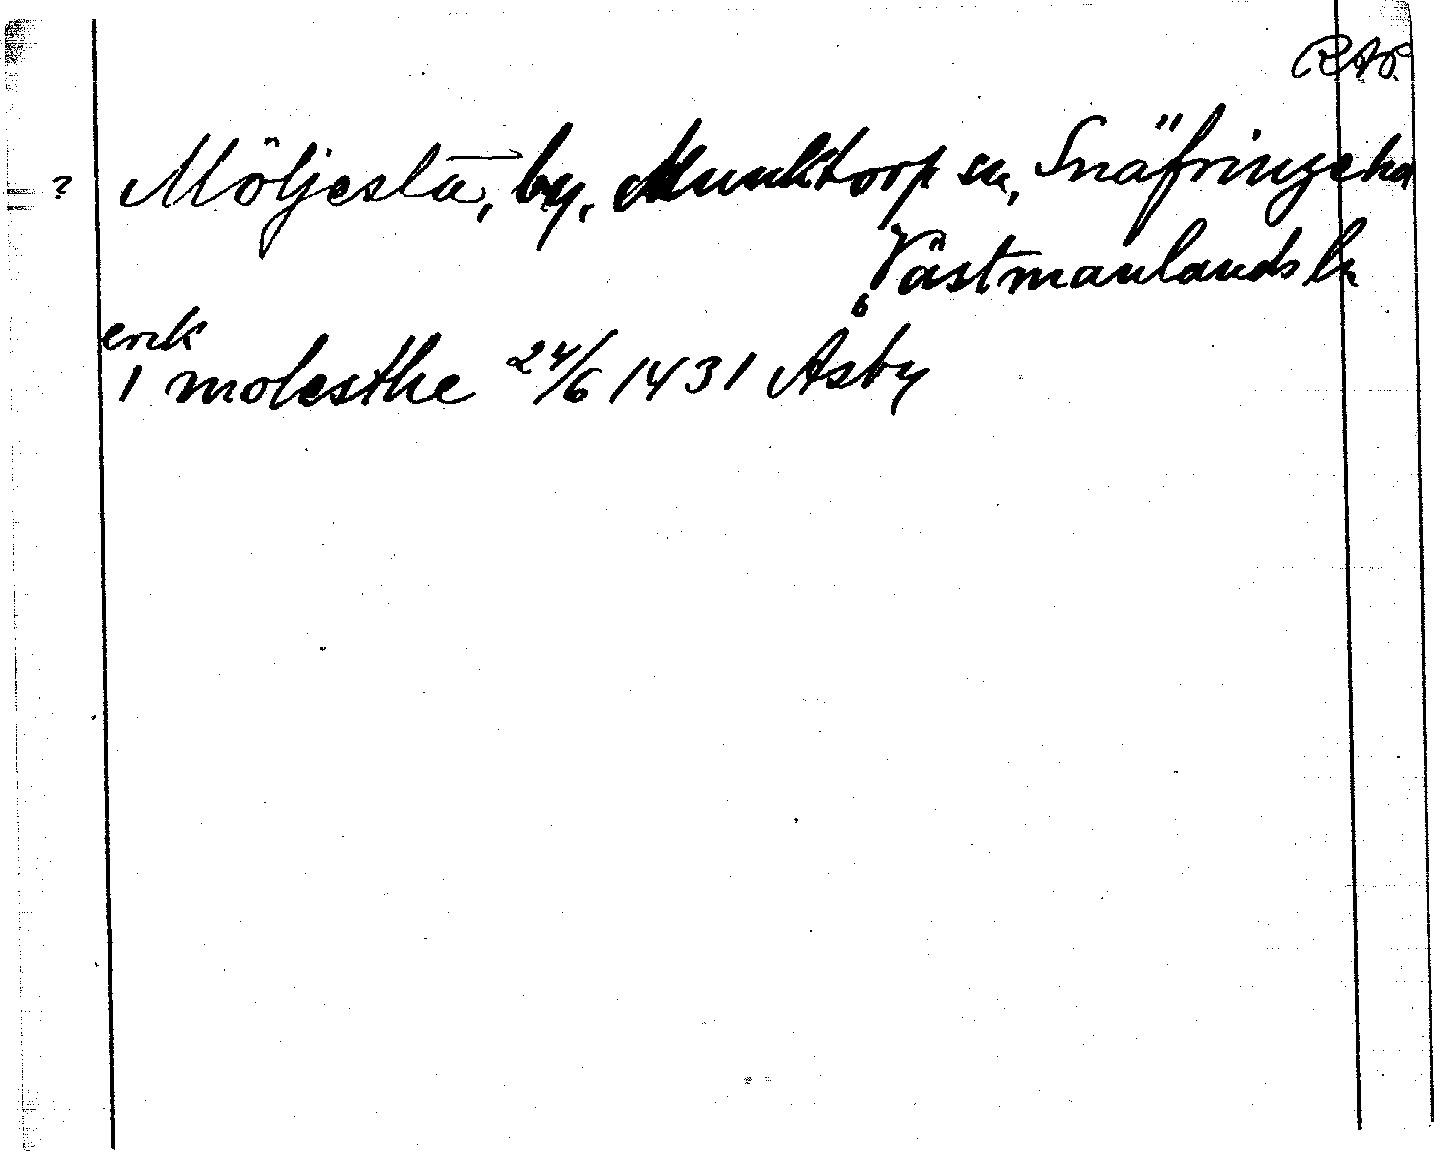 RAP.
? Möljesta, by, Munktorp sn, Snäfringe hd
Västmanlands ln
erik
i molesthe 24/6 1431 Åsby